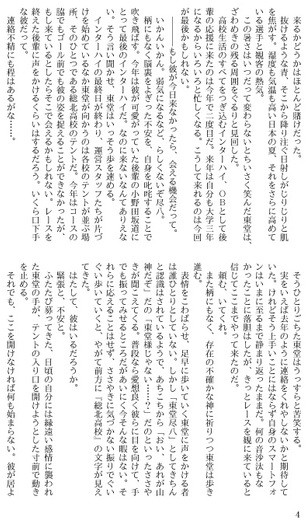 えるかどうかはほとんど賭けだった。
抜けるような青、そこから降り注ぐ日射しがじりじりと肌
を焦がす。湿度も気温も高い日本の夏、それをさらに高めて
いる選手と観客の熱気。
この暑さはいつだって変わらないとちいさく笑んだ東堂は、
ざわめきの残る周囲をぐるりと見回した。
高校生活のすべてをつぎ込むインターハイ、ＯＢとして後
輩の応援にきたのはこれで二度目だ。来年は自らも大学三年
になるからいろいろと忙しくなる。こうして来れるのは今回
が最後かもしれない。
――もし彼が今日来なかったら、会える機会だって。
いかんいかん、弱気になるなど、らしくないぞ尽八。
柄にもなく脳裏をよぎった不安を、自身を叱咤することで
吹き飛ばす。今年は彼が可愛がっていた後輩の小野田坂道に
とって最後のインターハイだ。なのに来ないなんてありえな
い。そう言い聞かせ、東堂はいっそう歩を速める。
最終日も終わり、運営スタッフたちが片づ
けを始めているなか東堂が向かうのは各校のテントが並ぶ場
所、そのひとつである総北高校のテントだ。今年はコースの
脇でもゴール前でも彼の姿を捉えることができなかったが、
もし来ているとしたらそこで会えるかもしれない。レースを
終えた後輩に声をかけるくらいはするだろう。いくら口下手
な彼だって。
連絡不精にも程はあるがな……。
そうひとりごちた東堂はうっすらと苦笑する。
実をいえば去年のように連絡をくれやしないかと期待して
いた。けれどそう上手いことにはならず自身のスマートフォ
ンはいまに至るまで静まり返ったままだ。何の音沙汰もな
かったことに落胆はしたが、きっとレースを観に来ていると
信じてここまでやって来たのだ。
頼む、いてくれ。
また柄にもなく、存在の不確かな神に祈りつつ東堂は歩き
進む。
表情をこわばらせ、足早に歩いていく東堂に声をかける者
は誰ひとりとしていない。しかし「東堂尽八」としてきちん
と認識はされているようで、あちこちから「おい、あれ山
神だぞ」だの「東堂様じゃない……？」だのといったささや
きが聞こえてくる。普段なら愛想良く彼らに目を向けて、手
でも振ってみせるところだがあいにく今そんな暇はない。そ
れらに応えることはせず、ささやきに気づかない振りでぐい
ぐい歩いていく。やがて前方に「総北高校」の文字が見え
てきた。
はたして、彼はいるだろうか。
緊張と、不安と。
ふたたび募ってきた、日頃の自分には縁遠い感情に襲われ
た東堂の手が、テントの入り口を開けようとした寸前で動き
を止める。
それでも、ここを開けなければ何も始まらない。彼が居よ
4